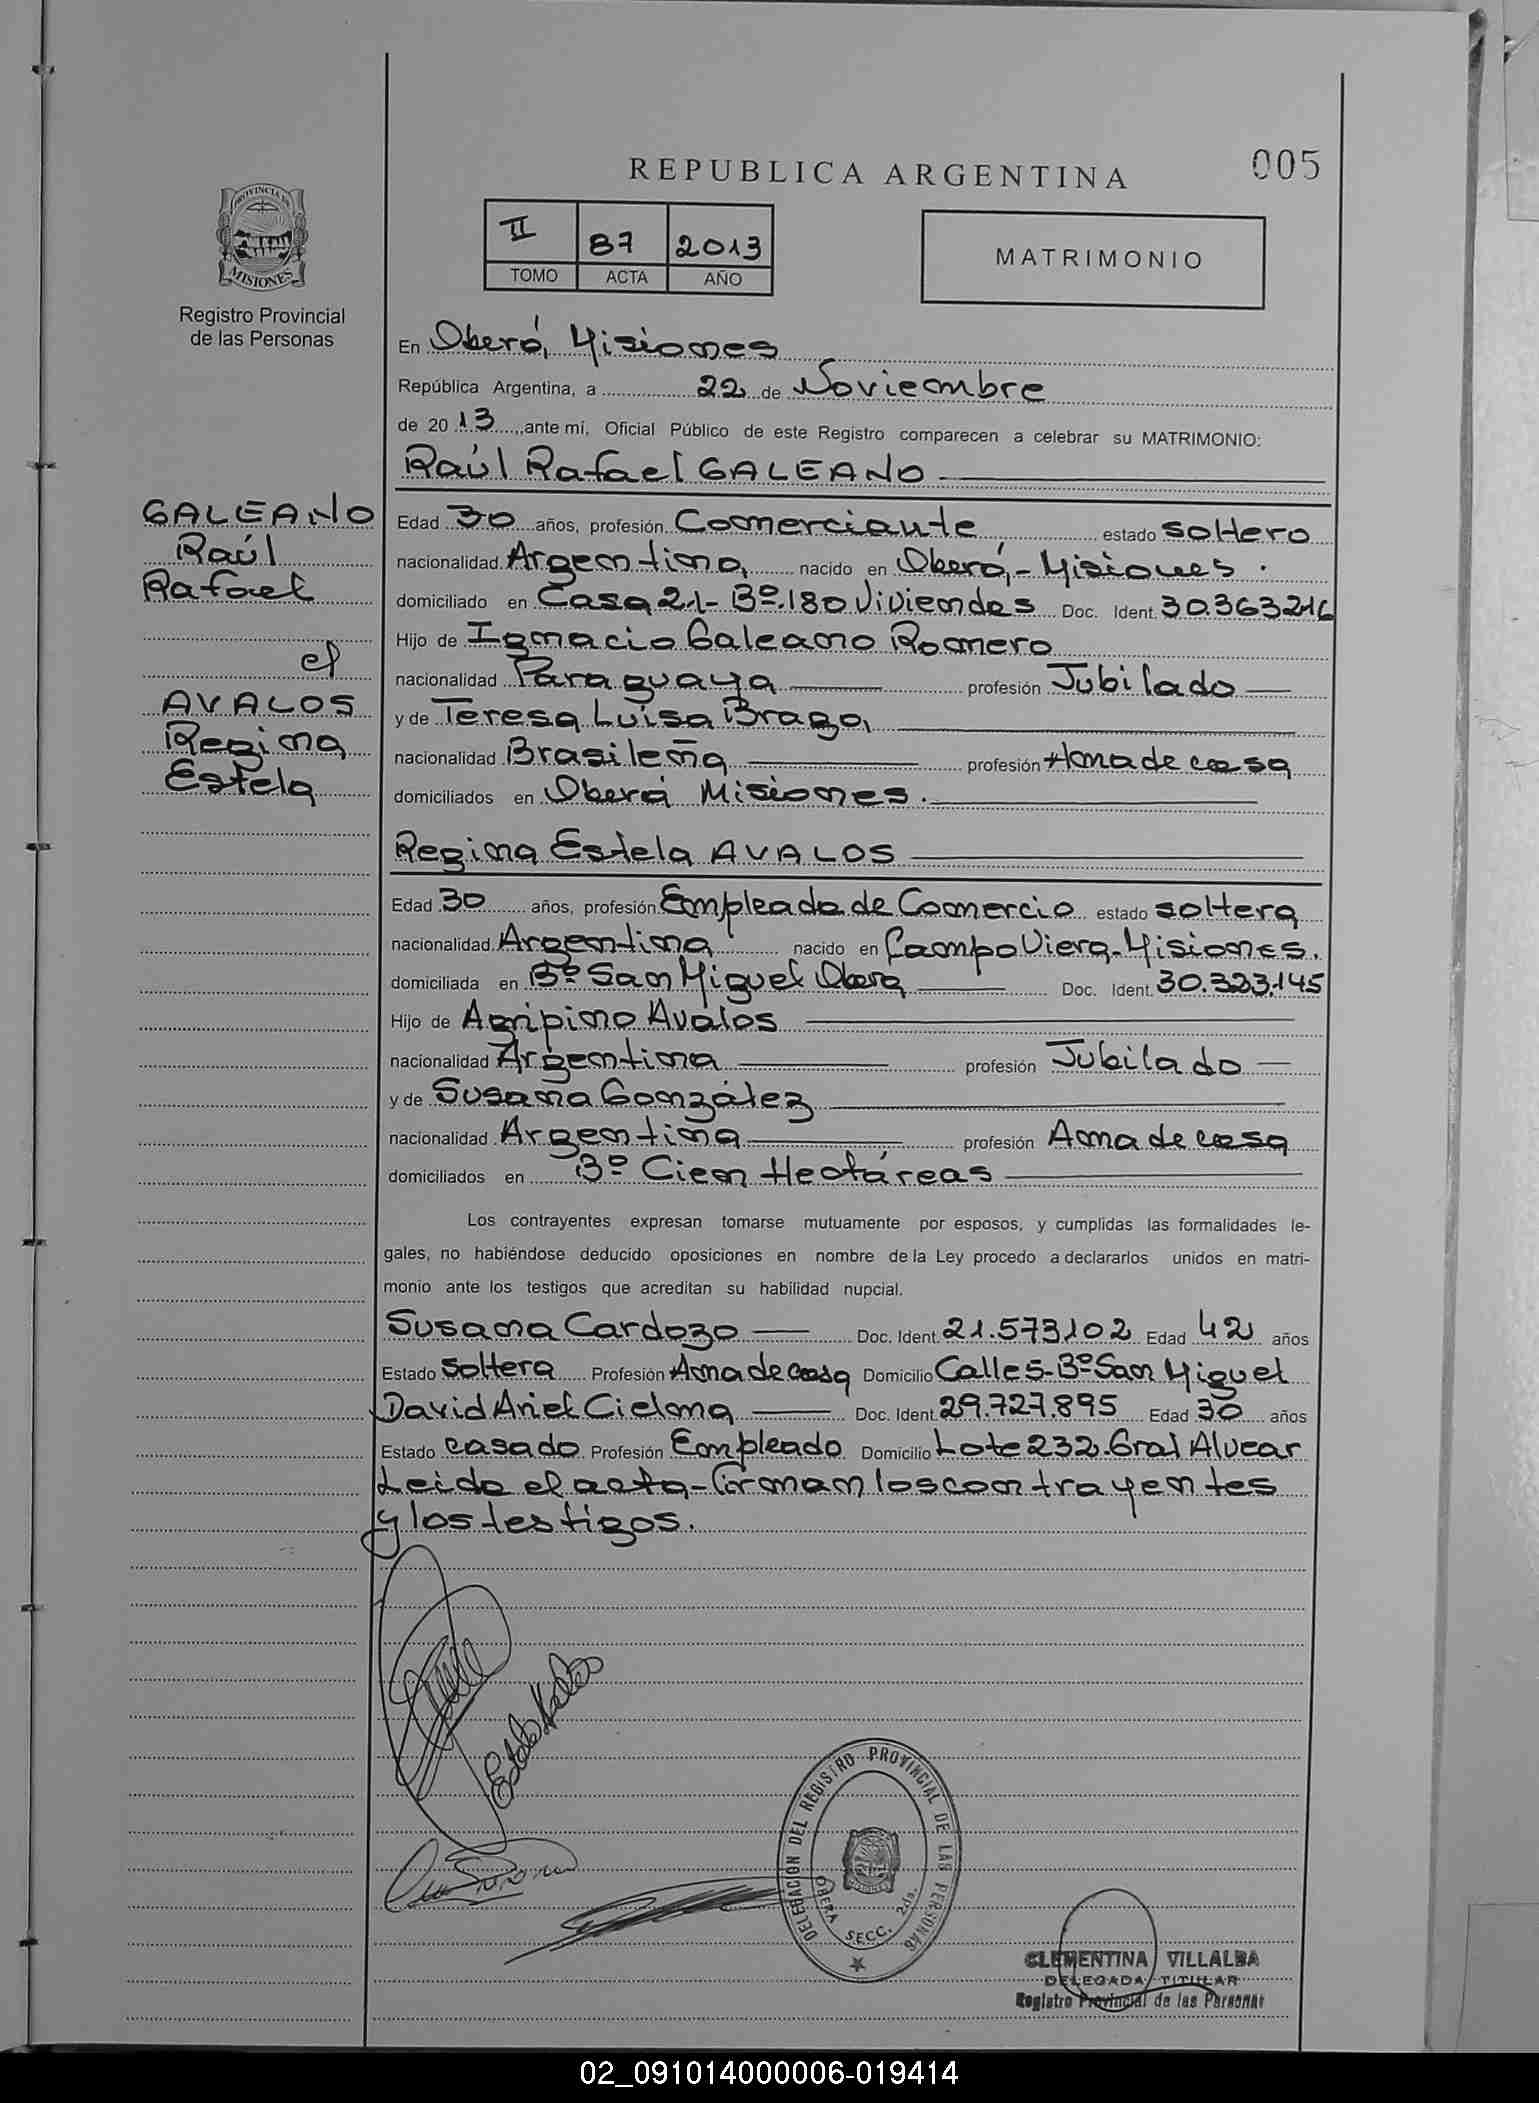 REPUBLICA ARGENTINA
005
PROVINCIA DE
MISIONES
Registro Provincial
de las Personas
II 87 2013
TOMO ACTA AÑO
MATRIMONIO
En Oberá, Misiones
República Argentina, a 22 de Noviembre
de 2013, ante mí, Oficial Público de este Registro comparecen a celebrar su MATRIMONIO:
Raúl Rafael GALEANO
GALEANO
Raúl
Rafael
AVALOS
Regina
Estela
Edad 30 años, profesión Comerciante estado soltero
nacionalidad Argentina, nacido en Oberá,- Misiones.
domiciliado en Casa 21- Bº.180 Viviendas Doc. Ident. 30.363216
Hijo de Ignacio Galeano Romero
nacionalidad Paraguaya profesión Jubilado
y de Teresa Luisa Braga,
nacionalidad Brasileña profesión Ama de casa
domiciliados en Oberá Misiones.
Regina Estela AVALOS
Edad 30 años, profesión Empleada de Comercio estado soltera
nacionalidad Argentina nacido en Campo Viera-Misiones.
domiciliada en Bº San Miguel Oberá Doc. Ident. 30.323.145
Hijo de Agripino Avalos
nacionalidad Argentina profesión Jubilado
y de Susana González
nacionalidad Argentina profesión Ama de casa
domiciliados en Bº Cien Hectáreas
Los contrayentes expresan tomarse mutuamente por esposos, y cumplidas las formalidades le-
gales, no habiéndose deducido oposiciones en nombre de la Ley procedo a declararlos unidos en matri-
monio ante los testigos que acreditan su habilidad nupcial.
Susana Cardozo Doc. Ident. 21.573.102 Edad 42 años
Estado soltera Profesión Ama de casa Domicilio Calle 5-Bº San Miguel
David Ariel Cielma Doc. Ident. 29.727.895 Edad 30 años
Estado casado Profesión Empleado Domicilio Lote 232.Gral Alvear
Leido el acta-firman los contrayentes
y los testigos.
DELEGACION DEL REGISTRO PROVINCIAL DE LAS PERSONAS
OBERA SECC. 2da.
CLEMENTINA VILLALBA
DELEGADA TITULAR
Registro Provincial de las Personas
02_091014000006-019414